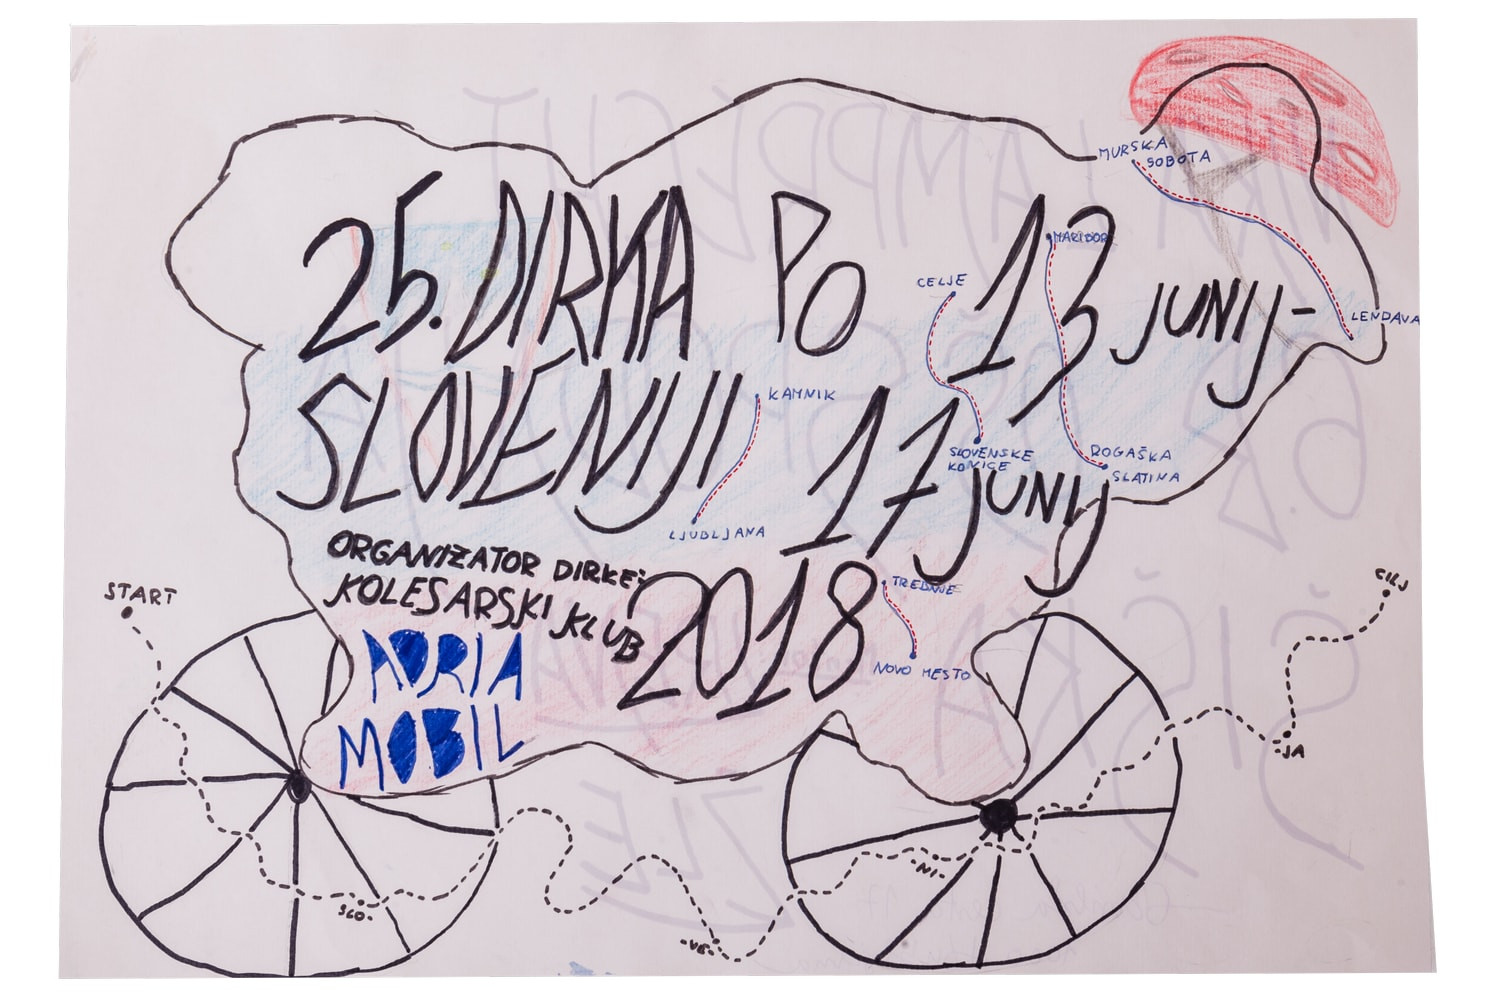 25. DIRKA PO
SLOVENIJI
13 JUNIJ-
17 JUNIJ
2018
ORGANIZATOR DIRKE:
KOLESARSKI KLUB
ADRIA
MOBIL
MURSKA
SOBOTA
LENDAVA
MARIBOR
ROGAŠKA
SLATINA
CELJE
SLOVENSKE
KONICE
KAMNIK
LJUBLJANA
TREBNJE
NOVO MESTO
START
SLO-
-VE-
-NI-
-JA
CILJ